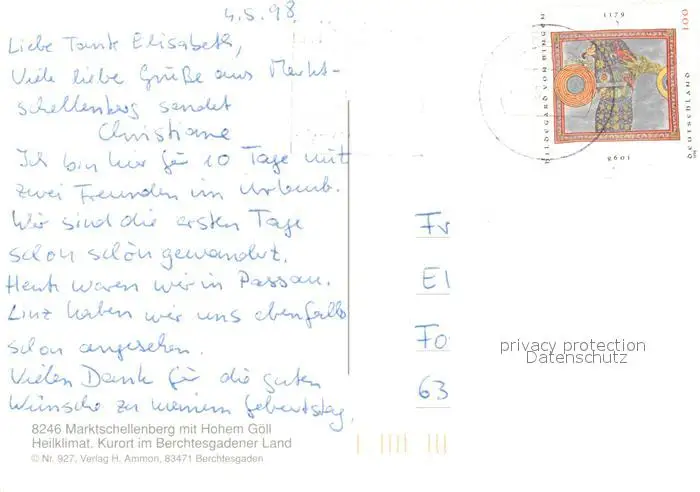 4.5.98
Liebe Tante Elisabeth,
Viele liebe Grüße aus Markt-
schellenberg sendet
Christiane
Ich bin hier für 10 Tage mit
zwei Freunden im Urlaub.
Wir sind die ersten Tage
schon schön gewandert.
Heute waren wir in Passau.
Linz haben wir uns ebenfalls
schon angesehen.
Vielen Dank für die guten
Wünsche zu meinem Geburtstag.
8246 Marktschellenberg mit Hohem Göll
Heilklimat. Kurort im Berchtesgadener Land
© Nr. 927, Verlag H. Ammon, 83471 Berchtesgaden
HILDEGARD VON BINGEN
1179
100
DEUTSCHLAND
1098
Fr
El
Fo
63
privacy protection
Datenschutz